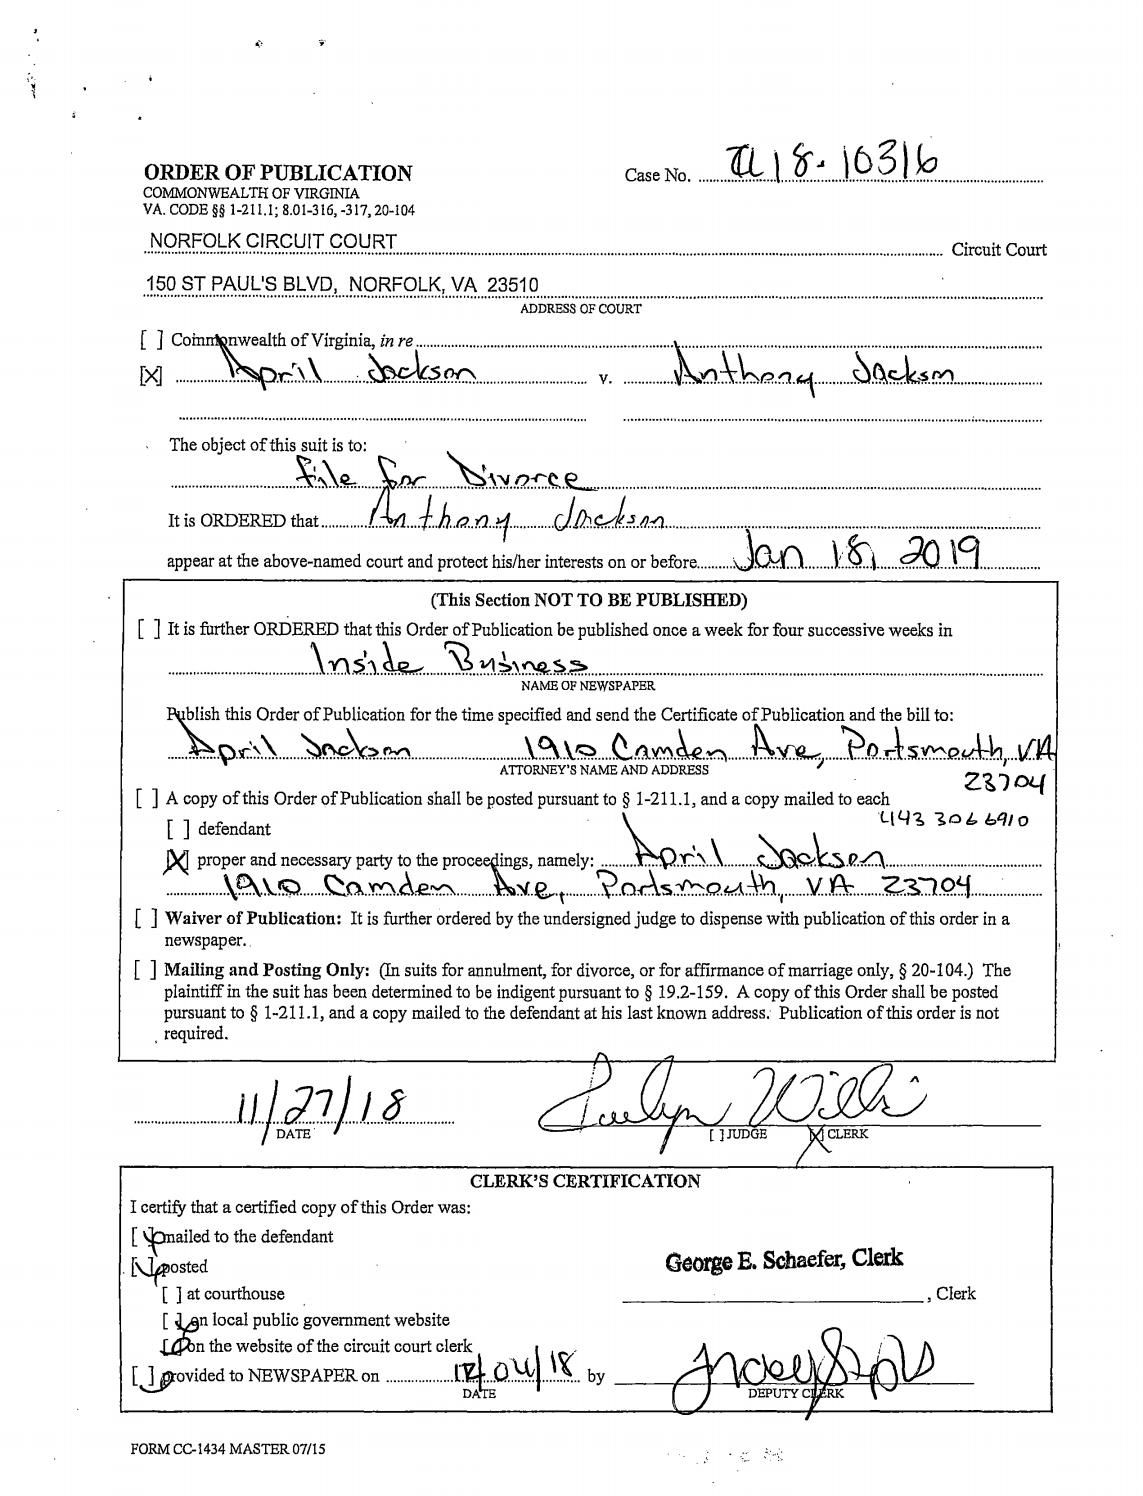 ORDER OF PUBLICATION
Case No. CL18-10316
COMMONWEALTH OF VIRGINIA
VA. CODE §§ 1-211.1; 8.01-316, -317, 20-104
NORFOLK CIRCUIT COURT Circuit Court
150 ST PAUL'S BLVD, NORFOLK, VA 23510
ADDRESS OF COURT
[ ] Commonwealth of Virginia, in re
[X] April Jackson v. Anthony Jackson
The object of this suit is to:
File for Divorce
It is ORDERED that Anthony Jackson
appear at the above-named court and protect his/her interests on or before Jan 18, 2019
(This Section NOT TO BE PUBLISHED)
[ ] It is further ORDERED that this Order of Publication be published once a week for four successive weeks in
Inside Business
NAME OF NEWSPAPER
Publish this Order of Publication for the time specified and send the Certificate of Publication and the bill to:
April Jackson 1910 Camden Ave, Portsmouth, VA
ATTORNEY'S NAME AND ADDRESS
23704
[ ] A copy of this Order of Publication shall be posted pursuant to § 1-211.1, and a copy mailed to each
443 306 6910
[ ] defendant
[X] proper and necessary party to the proceedings, namely: April Jackson
1910 Camden Ave, Portsmouth, VA 23704
[ ] Waiver of Publication: It is further ordered by the undersigned judge to dispense with publication of this order in a
newspaper.
[ ] Mailing and Posting Only: (In suits for annulment, for divorce, or for affirmance of marriage only, § 20-104.) The
plaintiff in the suit has been determined to be indigent pursuant to § 19.2-159. A copy of this Order shall be posted
pursuant to § 1-211.1, and a copy mailed to the defendant at his last known address. Publication of this order is not
required.
11/27/18
DATE [ ] JUDGE [X] CLERK
CLERK'S CERTIFICATION
I certify that a certified copy of this Order was:
[✓] mailed to the defendant
[✓] posted
George E. Schaefer, Clerk
[ ] at courthouse
, Clerk
[✓] on local public government website
[✓] on the website of the circuit court clerk
[✓] provided to NEWSPAPER on 12/04/18 by
DATE DEPUTY CLERK
FORM CC-1434 MASTER 07/15